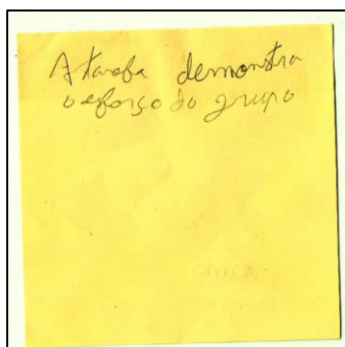 A tarefa demonstra
o esforço do grupo